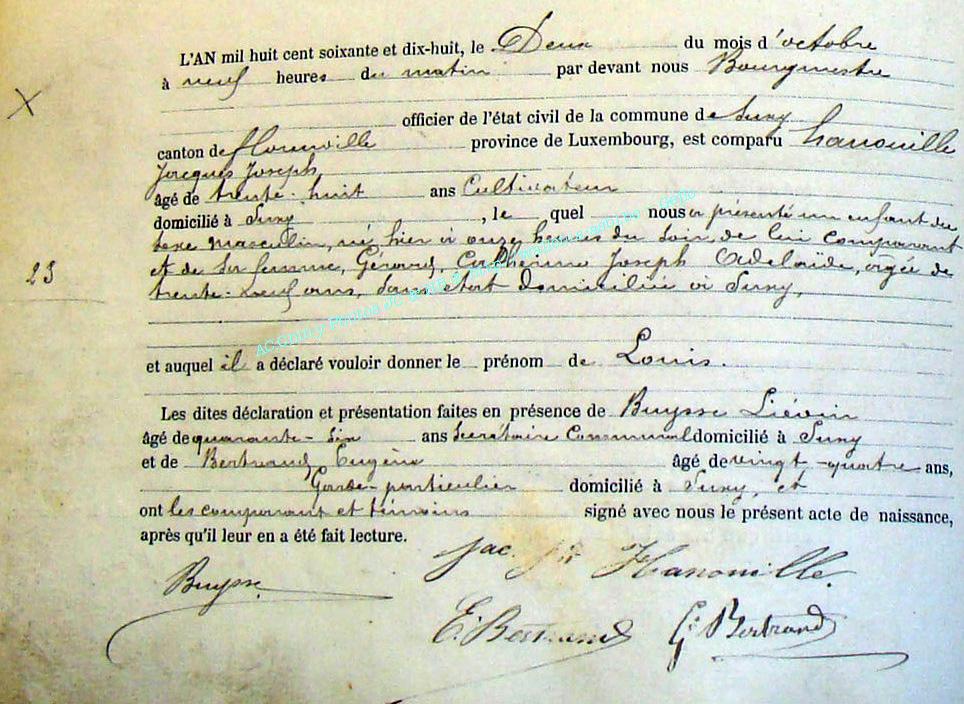 L'AN mil huit cent soixante et dix-huit, le Deux du mois d'octobre
à neuf heures du matin par devant nous Bourgmestre
officier de l'état civil de la commune de Suxy
canton de florenville province de Luxembourg, est comparu hanouille
Jacques Joseph
âgé de trente-huit ans Cultivateur
domicilié à Suxy, le quel nous a présenté un enfant du
sexe masculin, né hier à onze heures du soir, de lui comparant
et de sa femme, Gérard, Catherine Joseph Adelaïde, agée de
23
trente-neuf ans, sans état domiciliée à Suxy,
et auquel il a déclaré vouloir donner le prénom de Louis.
Les dites déclaration et présentation faites en présence de Buysse Liévin
âgé de quarante-six ans Secrétaire Communal domicilié à Suxy
et de Bertrand Eugène âgé de vingt-quatre ans,
Garde-particulier domicilié à Suxy, et
ont les comparant et témoins signé avec nous le présent acte de naissance,
après qu'il leur en a été fait lecture.
Jac. Jh Hanouille.
Buysse
E. Bertrand G. Bertrand